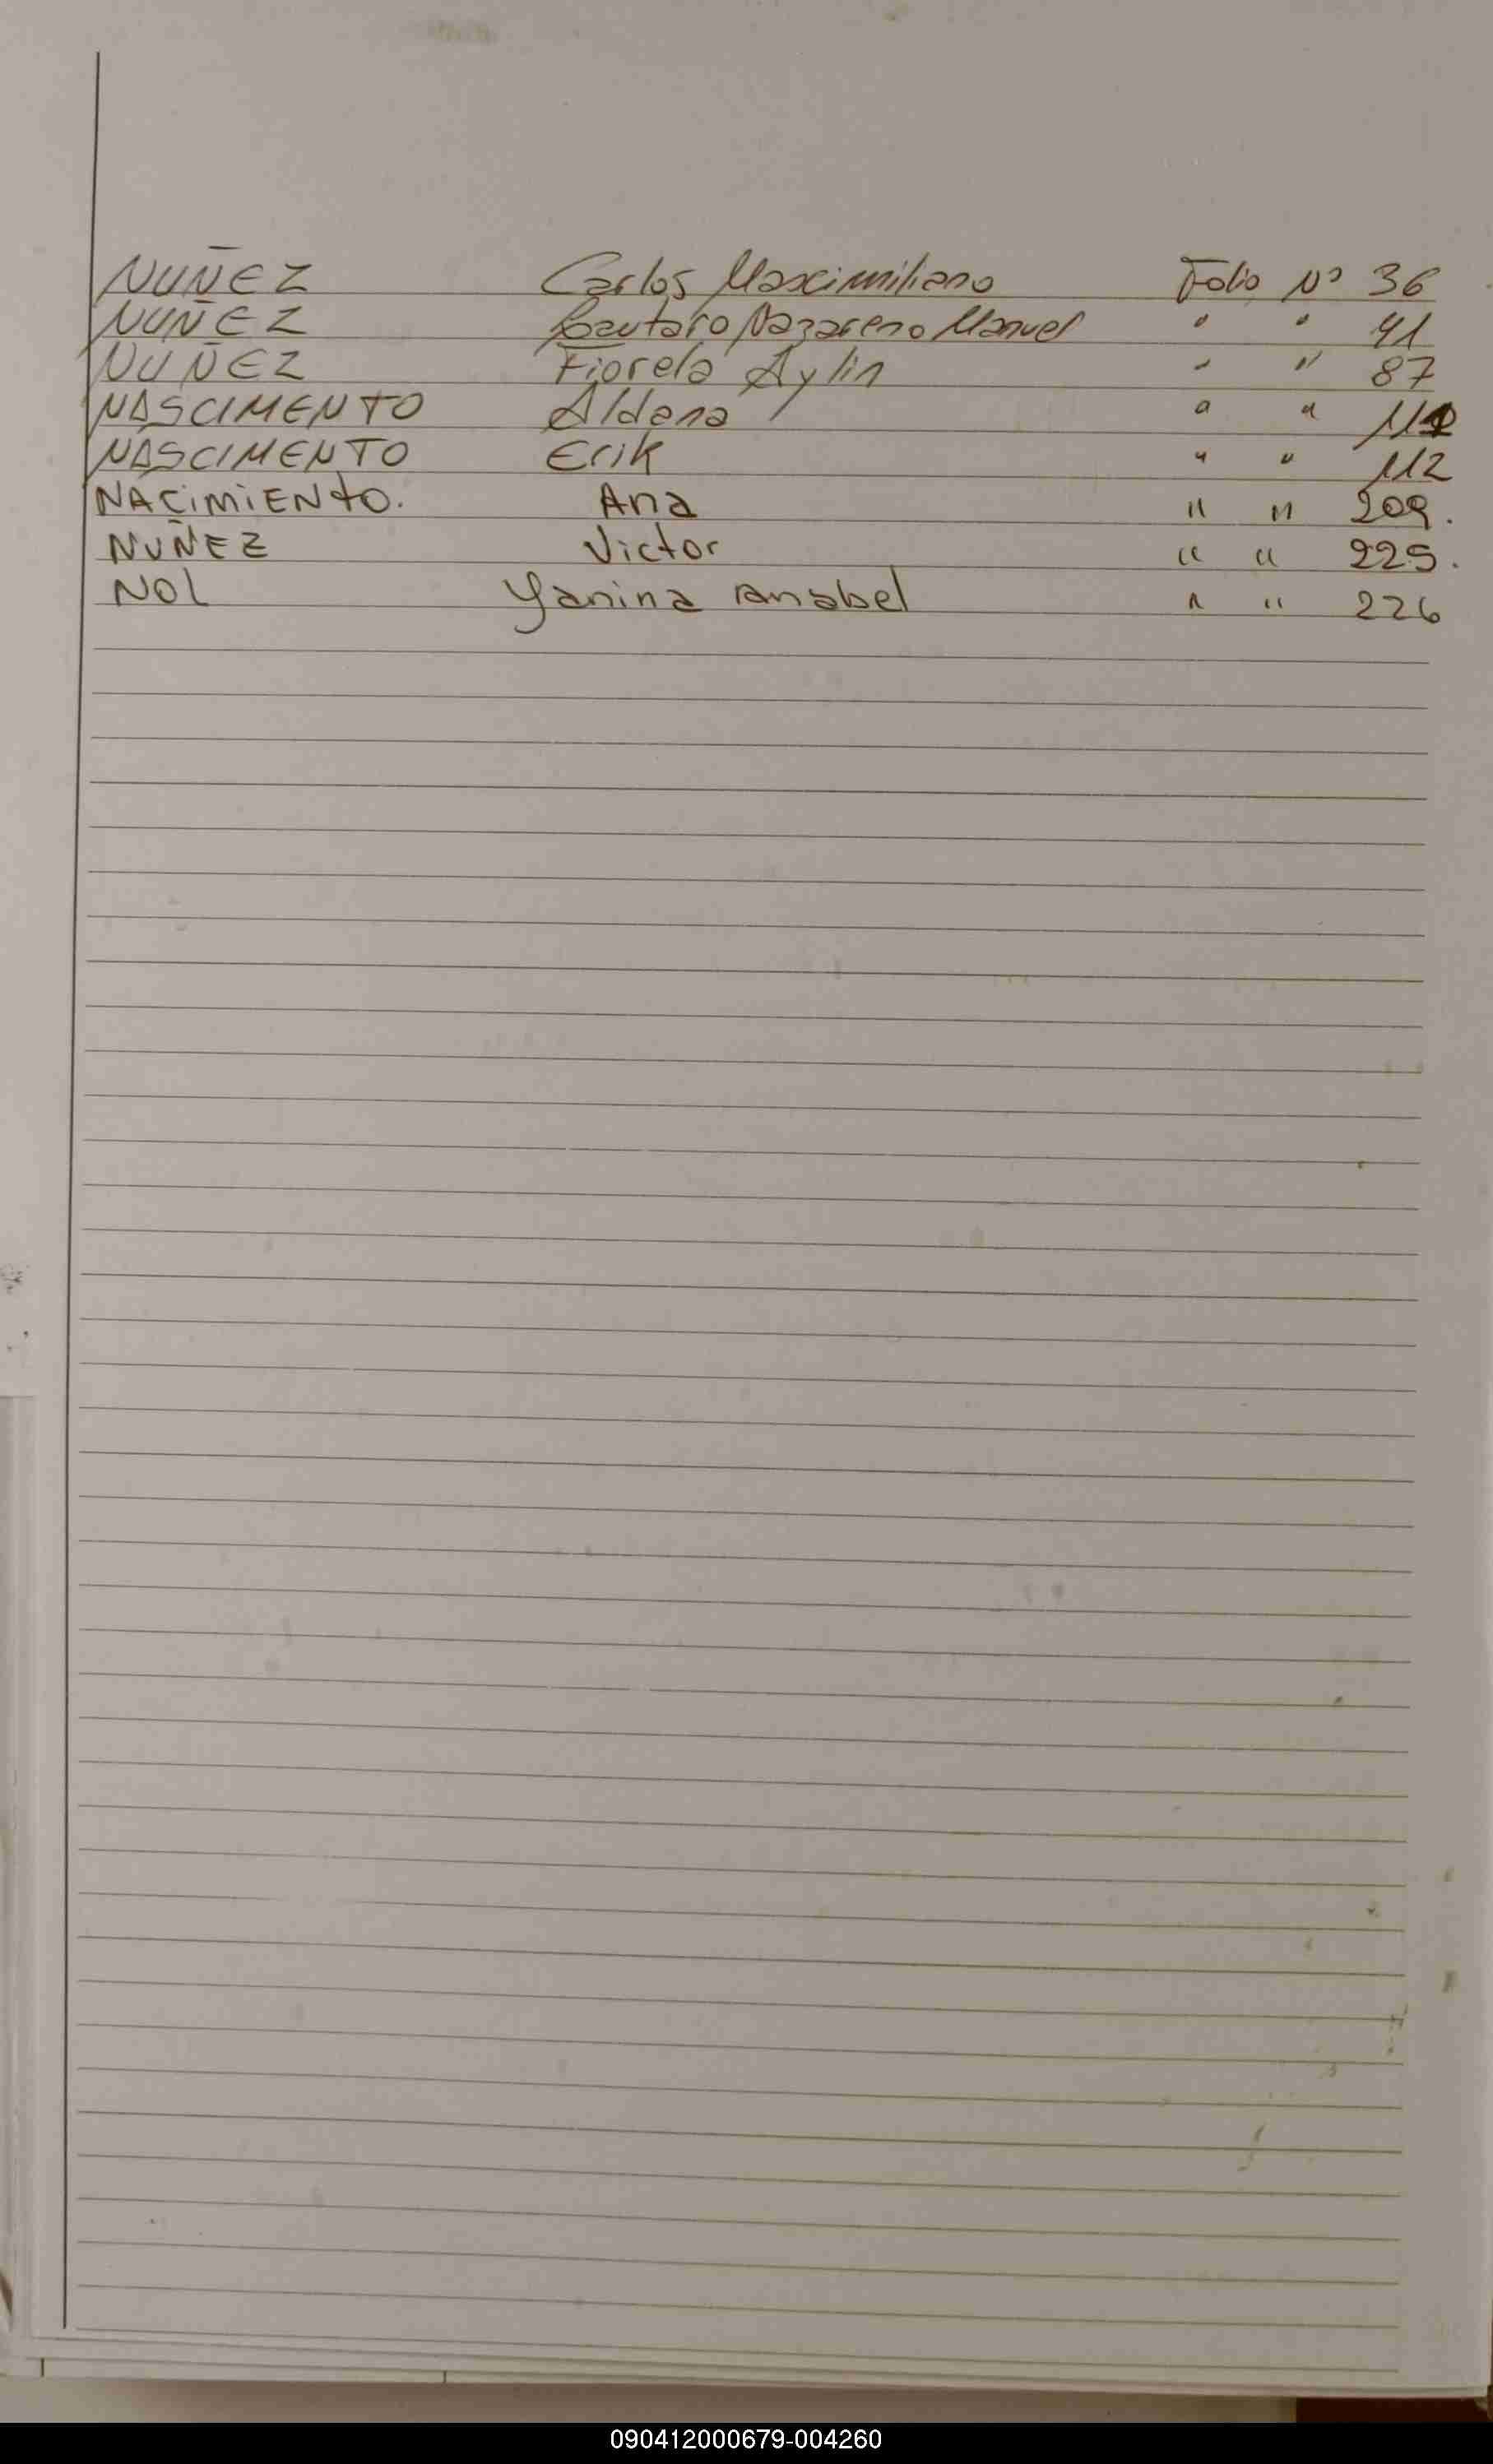 NUÑEZ Carlos Maximiliano Folio Nº 36
NUÑEZ Lautaro Nazareno Manuel " " 41
NUÑEZ Fiorela Aylin " " 87
NASCIMENTO Aldana " "
NASCIMENTO Erik " " 112
NACIMIENTO. Ana " " 209.
NUÑEZ Victor " " 225.
NOL Yanina anabel " " 226
090412000679-004260